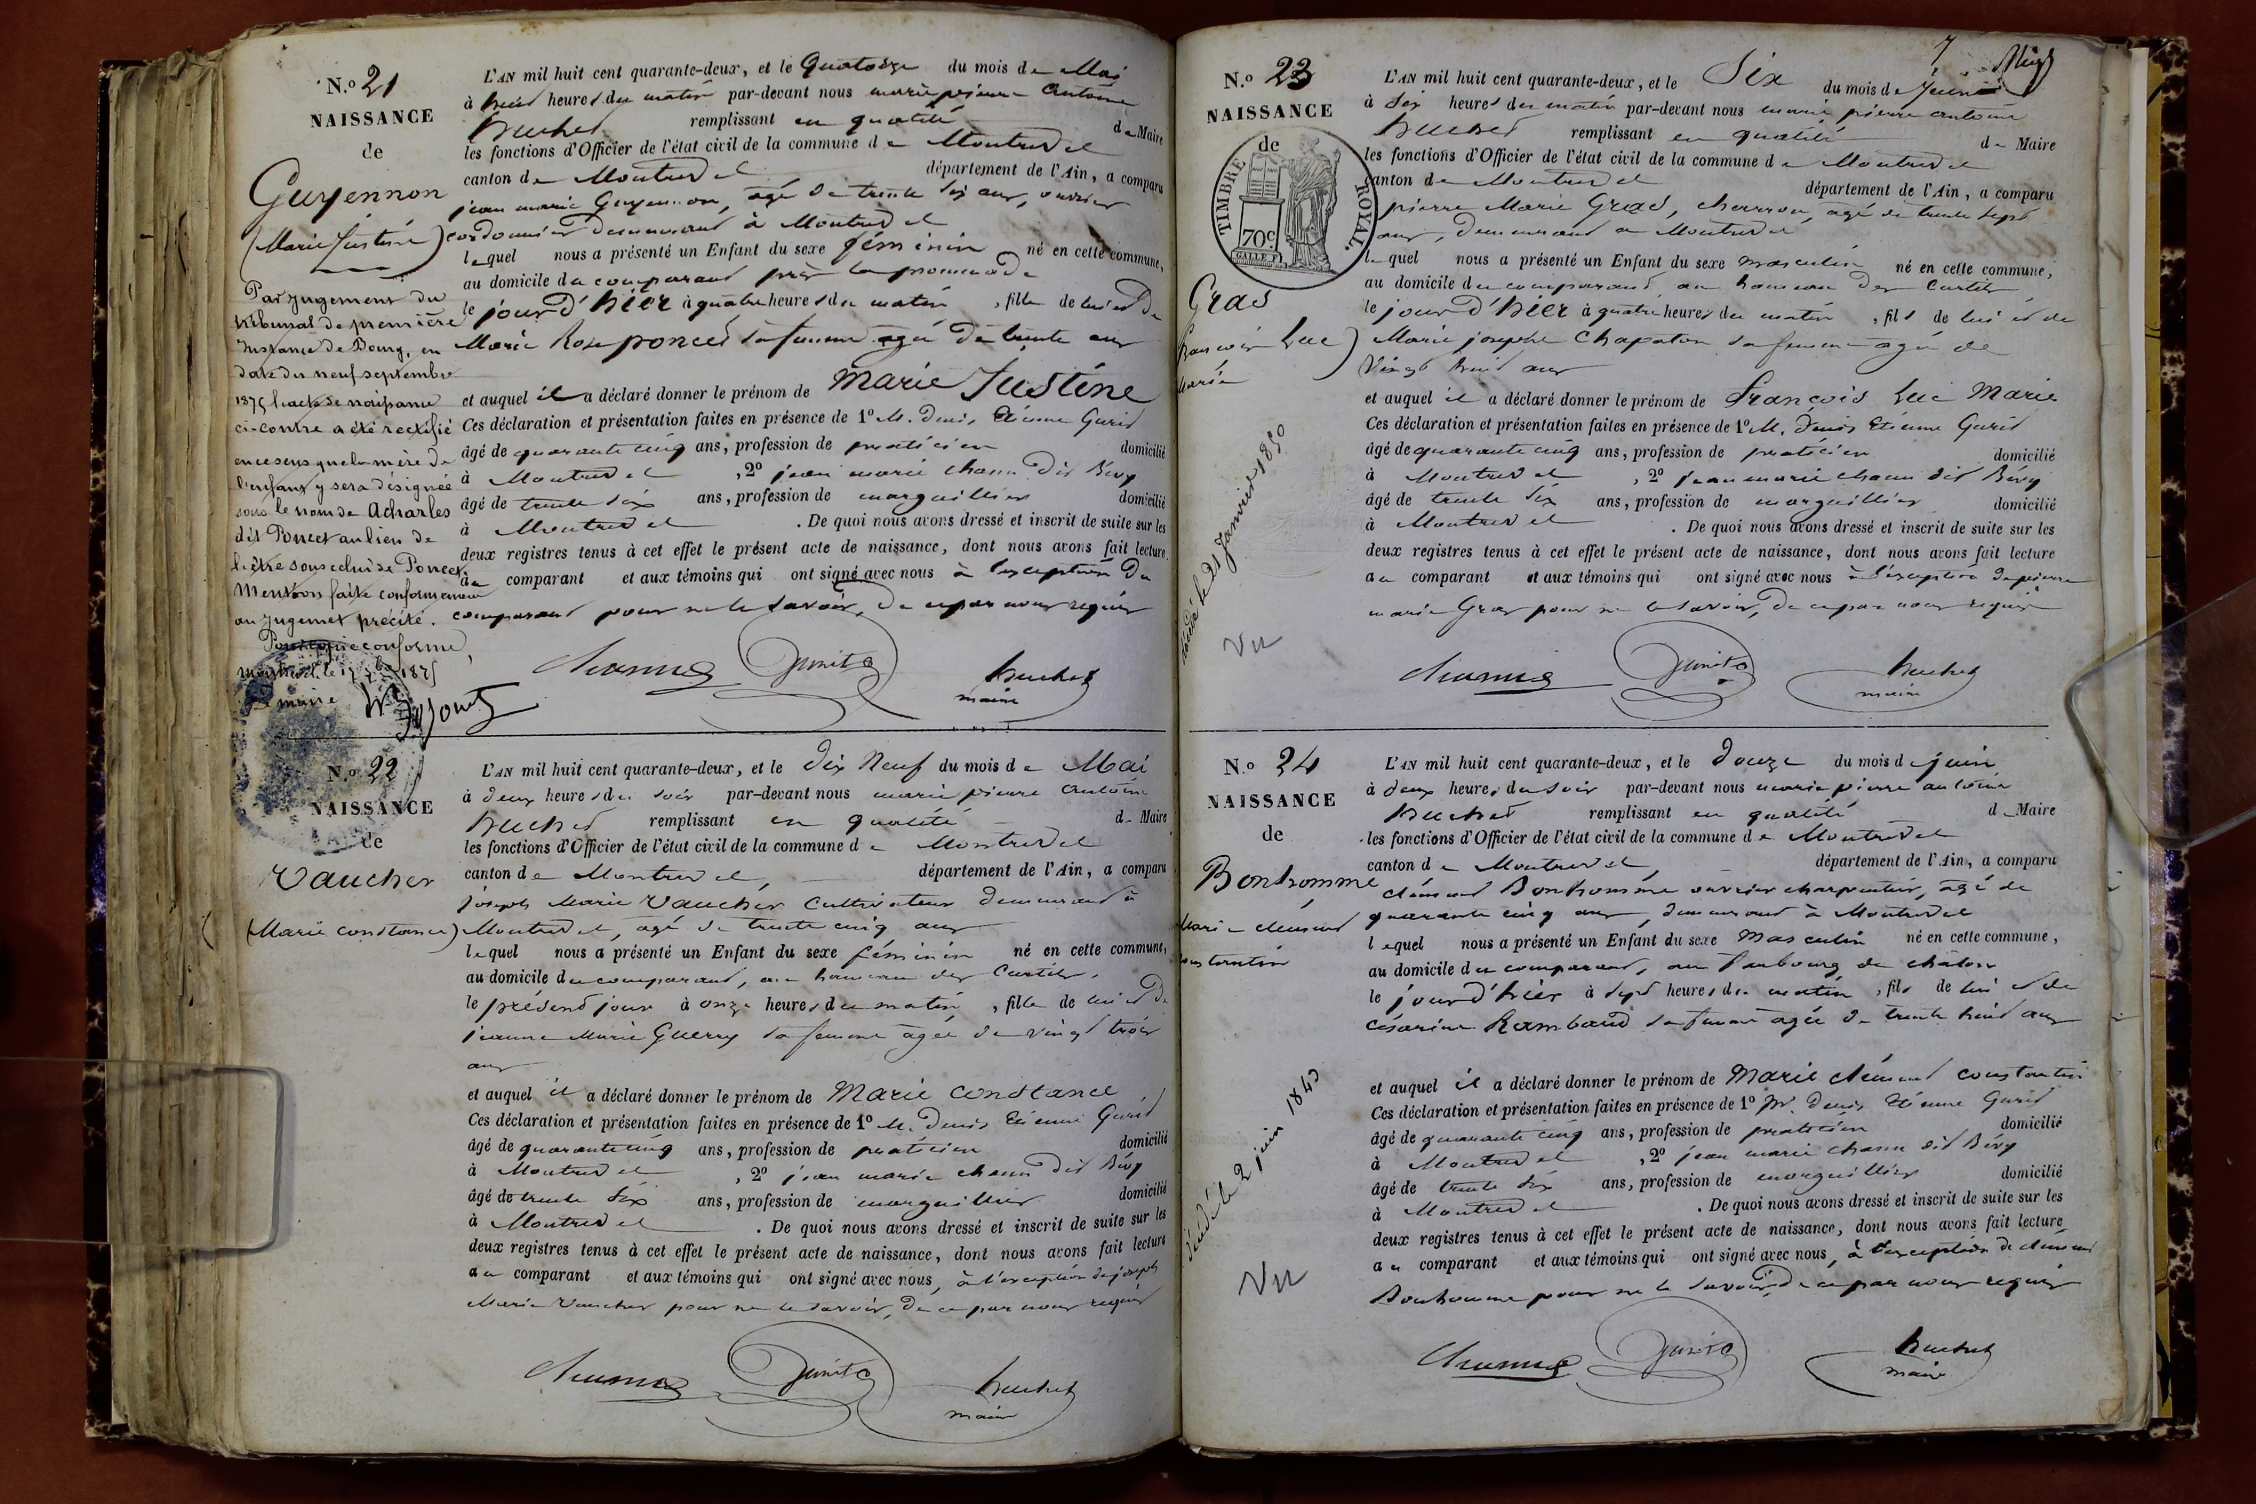 N.º 21
NAISSANCE
de
Guyennon
(Marie Justine)
Par jugement du
tribunal de première
Instance de Bourg, en
date du neuf septembre
1875 l'acte de naissance
ci-contre a été rectifié
en ce sens que la mère de
l'enfant y sera désignée
sous le nom de Acharles
dit Poncet au lieu de
l'être sous celui de Poncet
Mention faite conformément
au jugement précité.
Pour copie conforme,
Montrevel, le 17 1875
maire
L'AN mil huit cent quarante-deux, et le Quatorze du mois de Mai
à huit heures du matin par-devant nous marie pierre Antoine
huchet remplissant en qualité de Maire
les fonctions d'Officier de l'état civil de la commune de Montrevel
canton de Montrevel département de l'Ain, a comparu
jean marie Guyennon, agé de trente six ans, ouvrier
cordonnier demeurant à Montrevel
lequel nous a présenté un Enfant du sexe féminin né en cette commune,
au domicile du comparant près la promenade
le jour d'hier à quatre heures du matin, fille de lui et De
Marie Rose poncet sa femme agée de trente ans
et auquel il a déclaré donner le prénom de Marie Justine
Ces déclaration et présentation faites en présence de 1º M. Denis Etienne Guris
âgé de quarante cinq ans, profession de praticien domicilié
à Montrevel, 2º jean marie chanu dit Bévy
âgé de trente six ans, profession de marguillier domicilié
à Montrevel. De quoi nous avons dressé et inscrit de suite sur les
deux registres tenus à cet effet le présent acte de naissance, dont nous avons fait lecture
au comparant et aux témoins qui ont signé avec nous à l'exception du
comparant pour ne le savoir, de ce par nous requis
huchet
maire
N.º 22
NAISSANCE
de
Vaucher
(Marie constance)
L'AN mil huit cent quarante-deux, et le dix Neuf du mois de Mai
à deux heures du soir par-devant nous marie pierre antoine
huchet remplissant en qualité de Maire
les fonctions d'Officier de l'état civil de la commune de Montrevel
canton de Montrevel, département de l'Ain, a comparu
joseph Marie Vaucher cultivateur demeurant à
Montrevel, agé de trente cinq ans
lequel nous a présenté un Enfant du sexe féminin né en cette commune,
au domicile du comparant, au hameau des Curtils,
le présent jour à onze heures du matin, fille de lui et De
jeanne Marie Guerry sa femme agée de vingt trois
ans
et auquel il a déclaré donner le prénom de Marie constance
Ces déclaration et présentation faites en présence de 1º M. Denis Etienne Guris
âgé de quarante cinq ans, profession de praticien domicilié
à Montrevel, 2º jean marie chanu dit Bévy
âgé de trente six ans, profession de marguillier domicilié
à Montrevel. De quoi nous avons dressé et inscrit de suite sur les
deux registres tenus à cet effet le présent acte de naissance, dont nous avons fait lecture
au comparant et aux témoins qui ont signé avec nous, à l'exception de joseph
Marie Vaucher pour ne le savoir, de ce par nous requis
huchet
maire
7
N.º 23
NAISSANCE
de
TIMBRE ROYAL.
70c
Gras
françois Luc
Marie
décédé le 21 janvier 1850
Vu
L'AN mil huit cent quarante-deux, et le Six du mois de Juin
à six heures du matin par-devant nous marie pierre antoine
huchet remplissant en qualité de Maire
les fonctions d'Officier de l'état civil de la commune de Montrevel
canton de Montrevel département de l'Ain, a comparu
pierre Marie Gras, charron, agé de trente sept
ans, demeurant à Montrevel
lequel nous a présenté un Enfant du sexe masculin né en cette commune,
au domicile du comparant au hameau des Curtils
le jour d'hier à quatre heures du matin, fils de lui et de
Marie josephe Chapaton sa femme agée de
Vingt huit ans
et auquel il a déclaré donner le prénom de François Luc Marie
Ces déclaration et présentation faites en présence de 1º M. Denis Etienne Guris
âgé de quarante cinq ans, profession de praticien domicilié
à Montrevel, 2º jean marie chanu dit Bévy
âgé de trente six ans, profession de marguillier domicilié
à Montrevel. De quoi nous avons dressé et inscrit de suite sur les
deux registres tenus à cet effet le présent acte de naissance, dont nous avons fait lecture
au comparant et aux témoins qui ont signé avec nous à l'exception de pierre
marie Gras pour ne le savoir, de ce par nous requis
huchet
maire
N.º 24
NAISSANCE
de
Bonhomme
Marie clément
constantin
décédé le 2 juin 1843
Vu
L'AN mil huit cent quarante-deux, et le douze du mois de juin
à deux heures du soir par-devant nous marie pierre antoine
huchet remplissant en qualité de Maire
les fonctions d'Officier de l'état civil de la commune de Montrevel
canton de Montrevel, département de l'Ain, a comparu
clément Bonhomme ouvrier charpentier, agé de
quarante cinq ans, demeurant à Montrevel
lequel nous a présenté un Enfant du sexe masculin né en cette commune,
au domicile du comparant, au faubourg de châlon
le jour d'hier à sept heures du matin, fils de lui et de
césarine Rambaud sa femme agée de trente huit ans
et auquel il a déclaré donner le prénom de Marie clément constantin
Ces déclaration et présentation faites en présence de 1º M. Denis Etienne Guris
âgé de quarante cinq ans, profession de praticien domicilié
à Montrevel, 2º jean marie chanu dit Bévy
âgé de trente six ans, profession de marguillier domicilié
à Montrevel. De quoi nous avons dressé et inscrit de suite sur les
deux registres tenus à cet effet le présent acte de naissance, dont nous avons fait lecture
au comparant et aux témoins qui ont signé avec nous, à l'exception de clément
Bonhomme pour ne le savoir, de ce par nous requis
huchet
maire